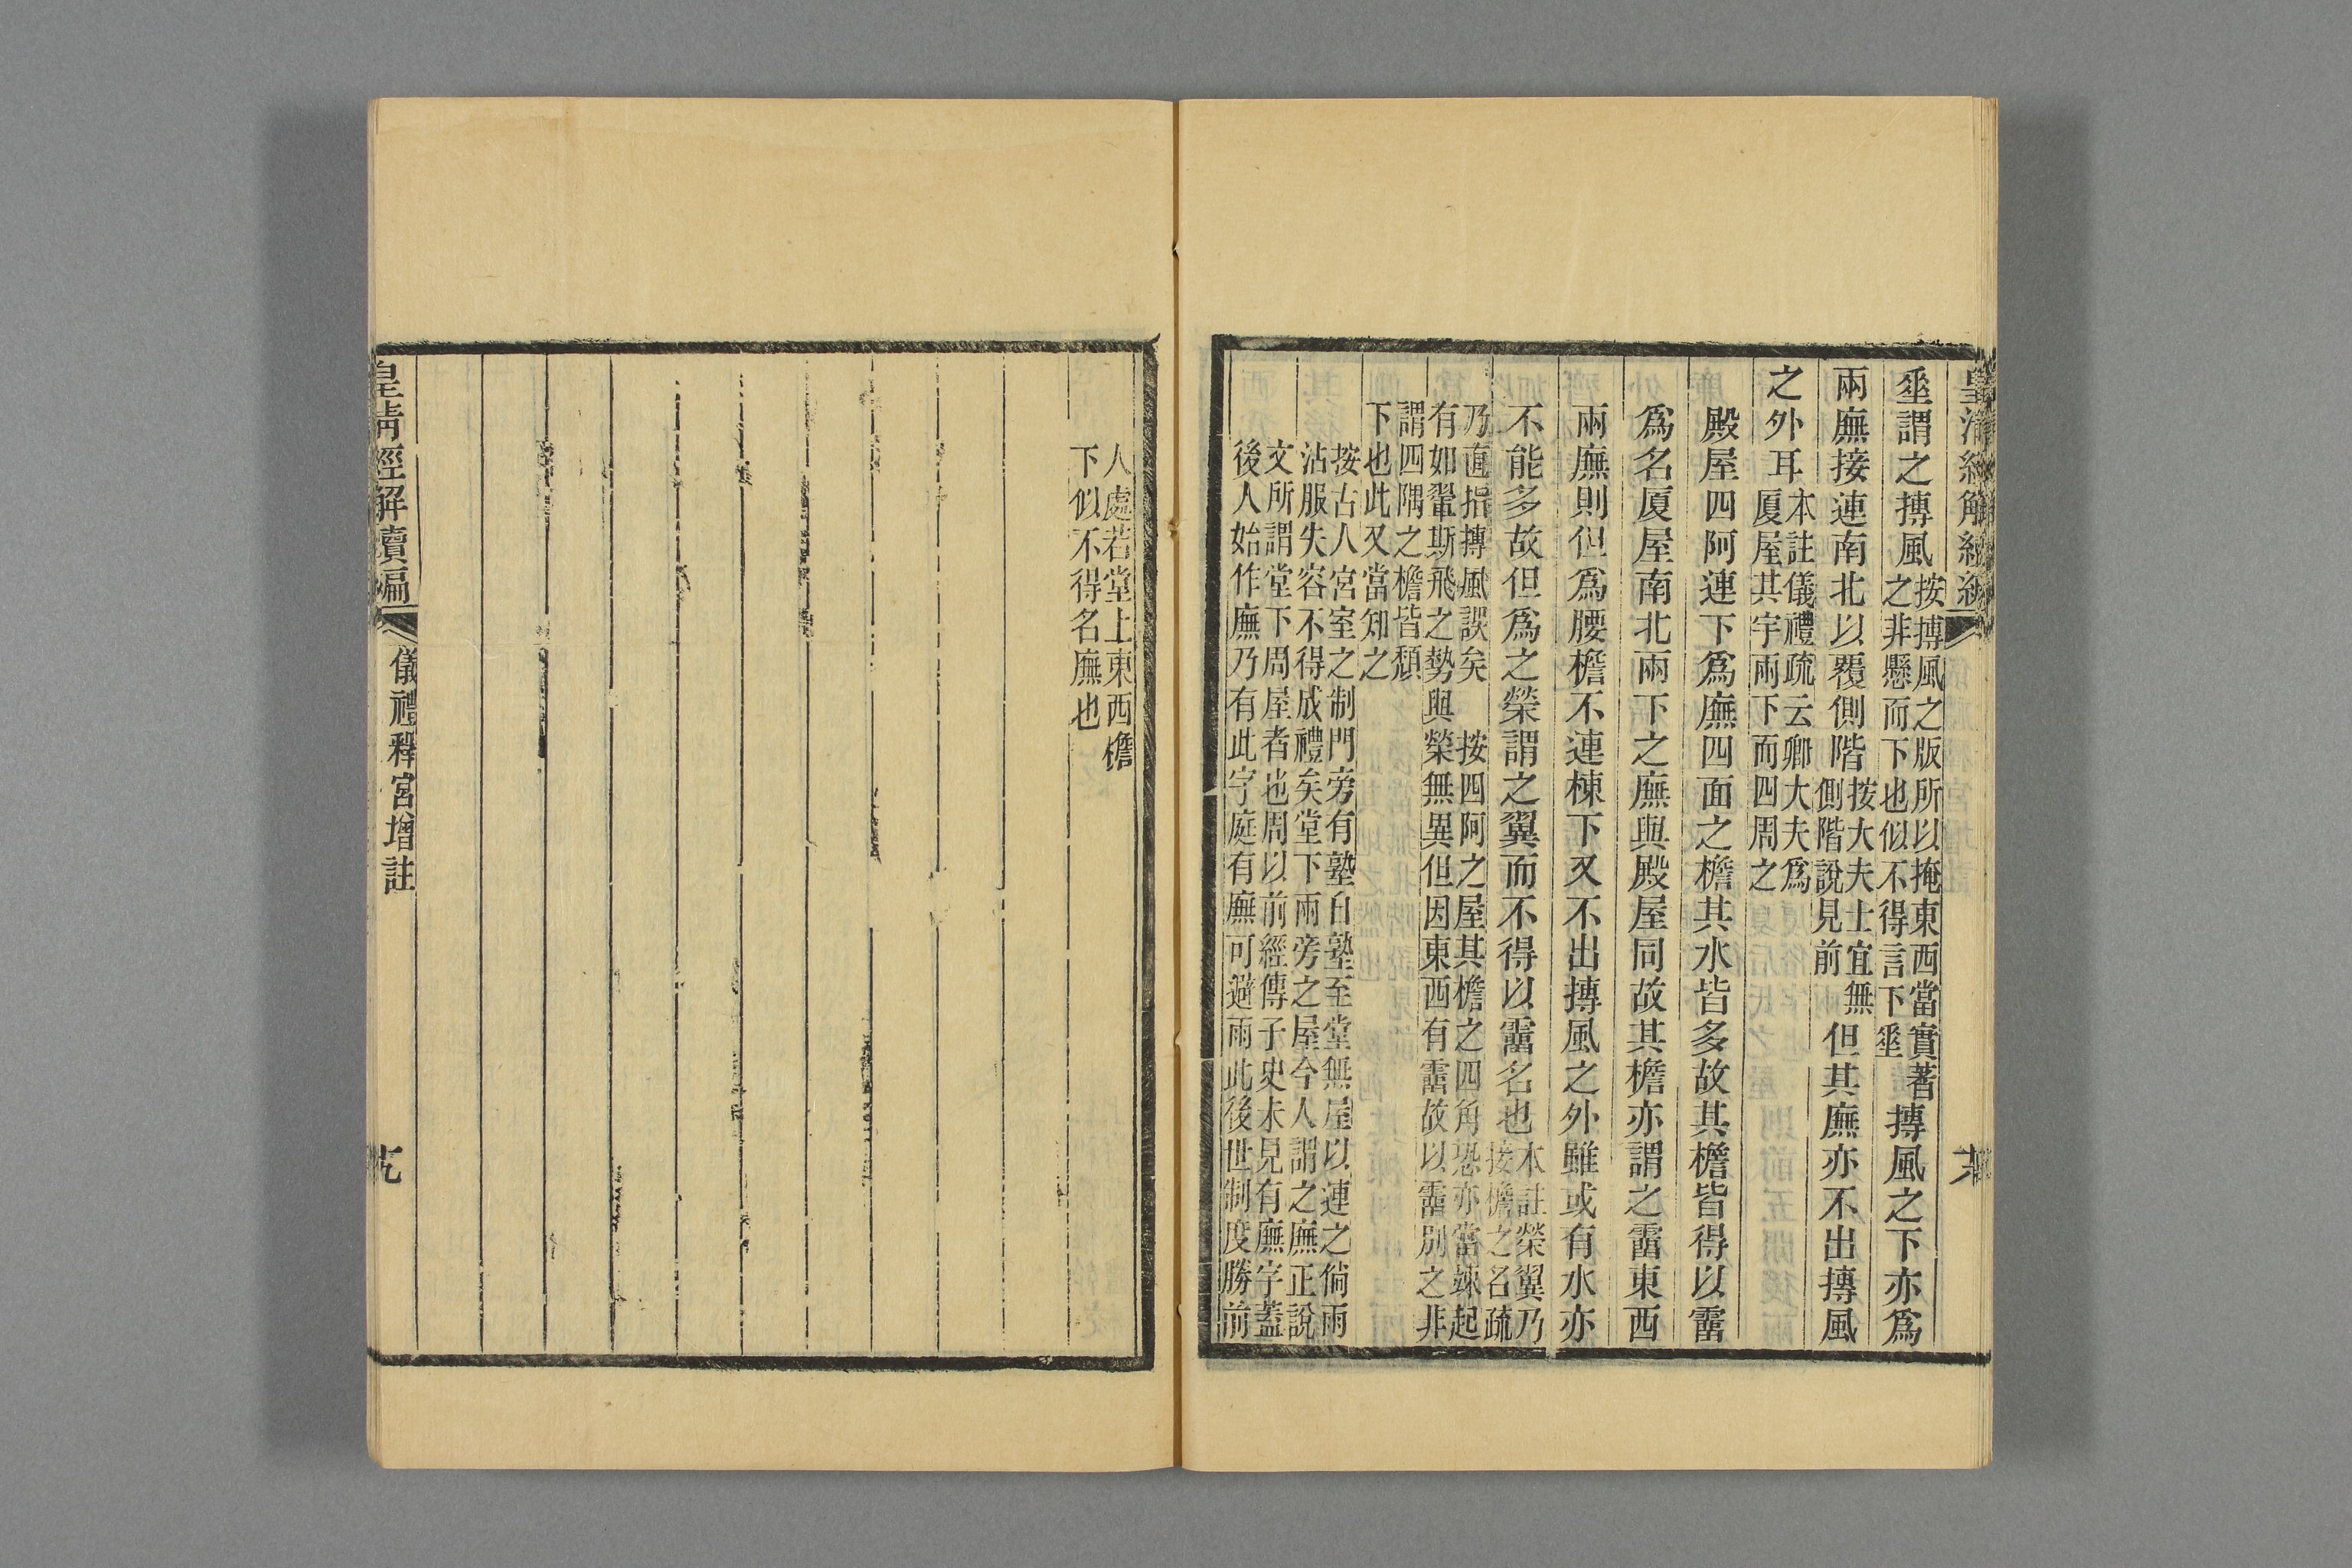 皇清經解續編
垂謂之摶風
按摶風之版所以掩東西當實著
之非懸而下也似不得言下垂
摶風之下亦爲
兩廡接連南北以覆側階
按大夫士宜無
側階說見前
但其廡亦不出摶風
之外耳
本註儀禮疏云卿大夫爲
厦屋其宇兩下而四周之
殿屋四阿連下爲廡四面之檐其水皆多故其檐皆得以霤
爲名厦屋南北兩下之廡與殿屋同故其檐亦謂之霤東西
兩廡則但爲腰檐不連棟下又不出摶風之外雖或有水亦
不能多故但爲之榮謂之翼而不得以霤名也
本註榮翼乃
接檐之名疏
乃直指摶風誤矣　按四阿之屋其檐之四角恐亦當竦起
有如翬斯飛之勢與榮無異但因東西有霤故以霤別之非
謂四隅之檐皆頹
下也此又當知之
按古人宮室之制門旁有塾自塾至堂無屋以連之倘雨
沾服失容不得成禮矣堂下兩旁之屋今人謂之廡正說
文所謂堂下周屋者也周以前經傳子史未見有廡字蓋
後人始作廡乃有此字庭有廡可避雨此後世制度勝前
人處若堂上東西檐
下似不得名廡也
皇清經解續編
儀禮釋宮增註